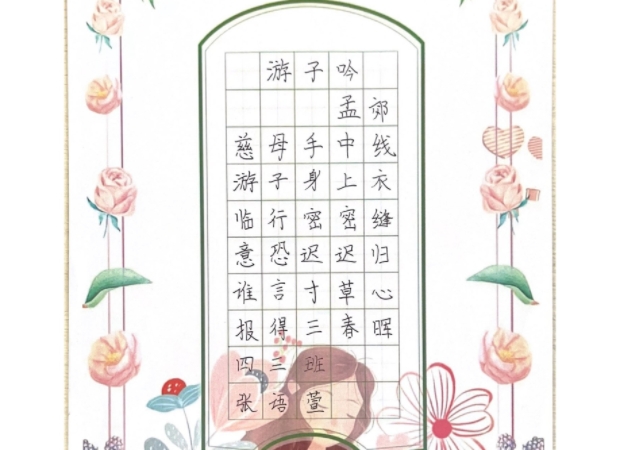 游子吟
孟郊
慈母手中线
游子身上衣
临行密密缝
意恐迟迟归
谁言寸草心
报得三春晖
四三班
张语萱